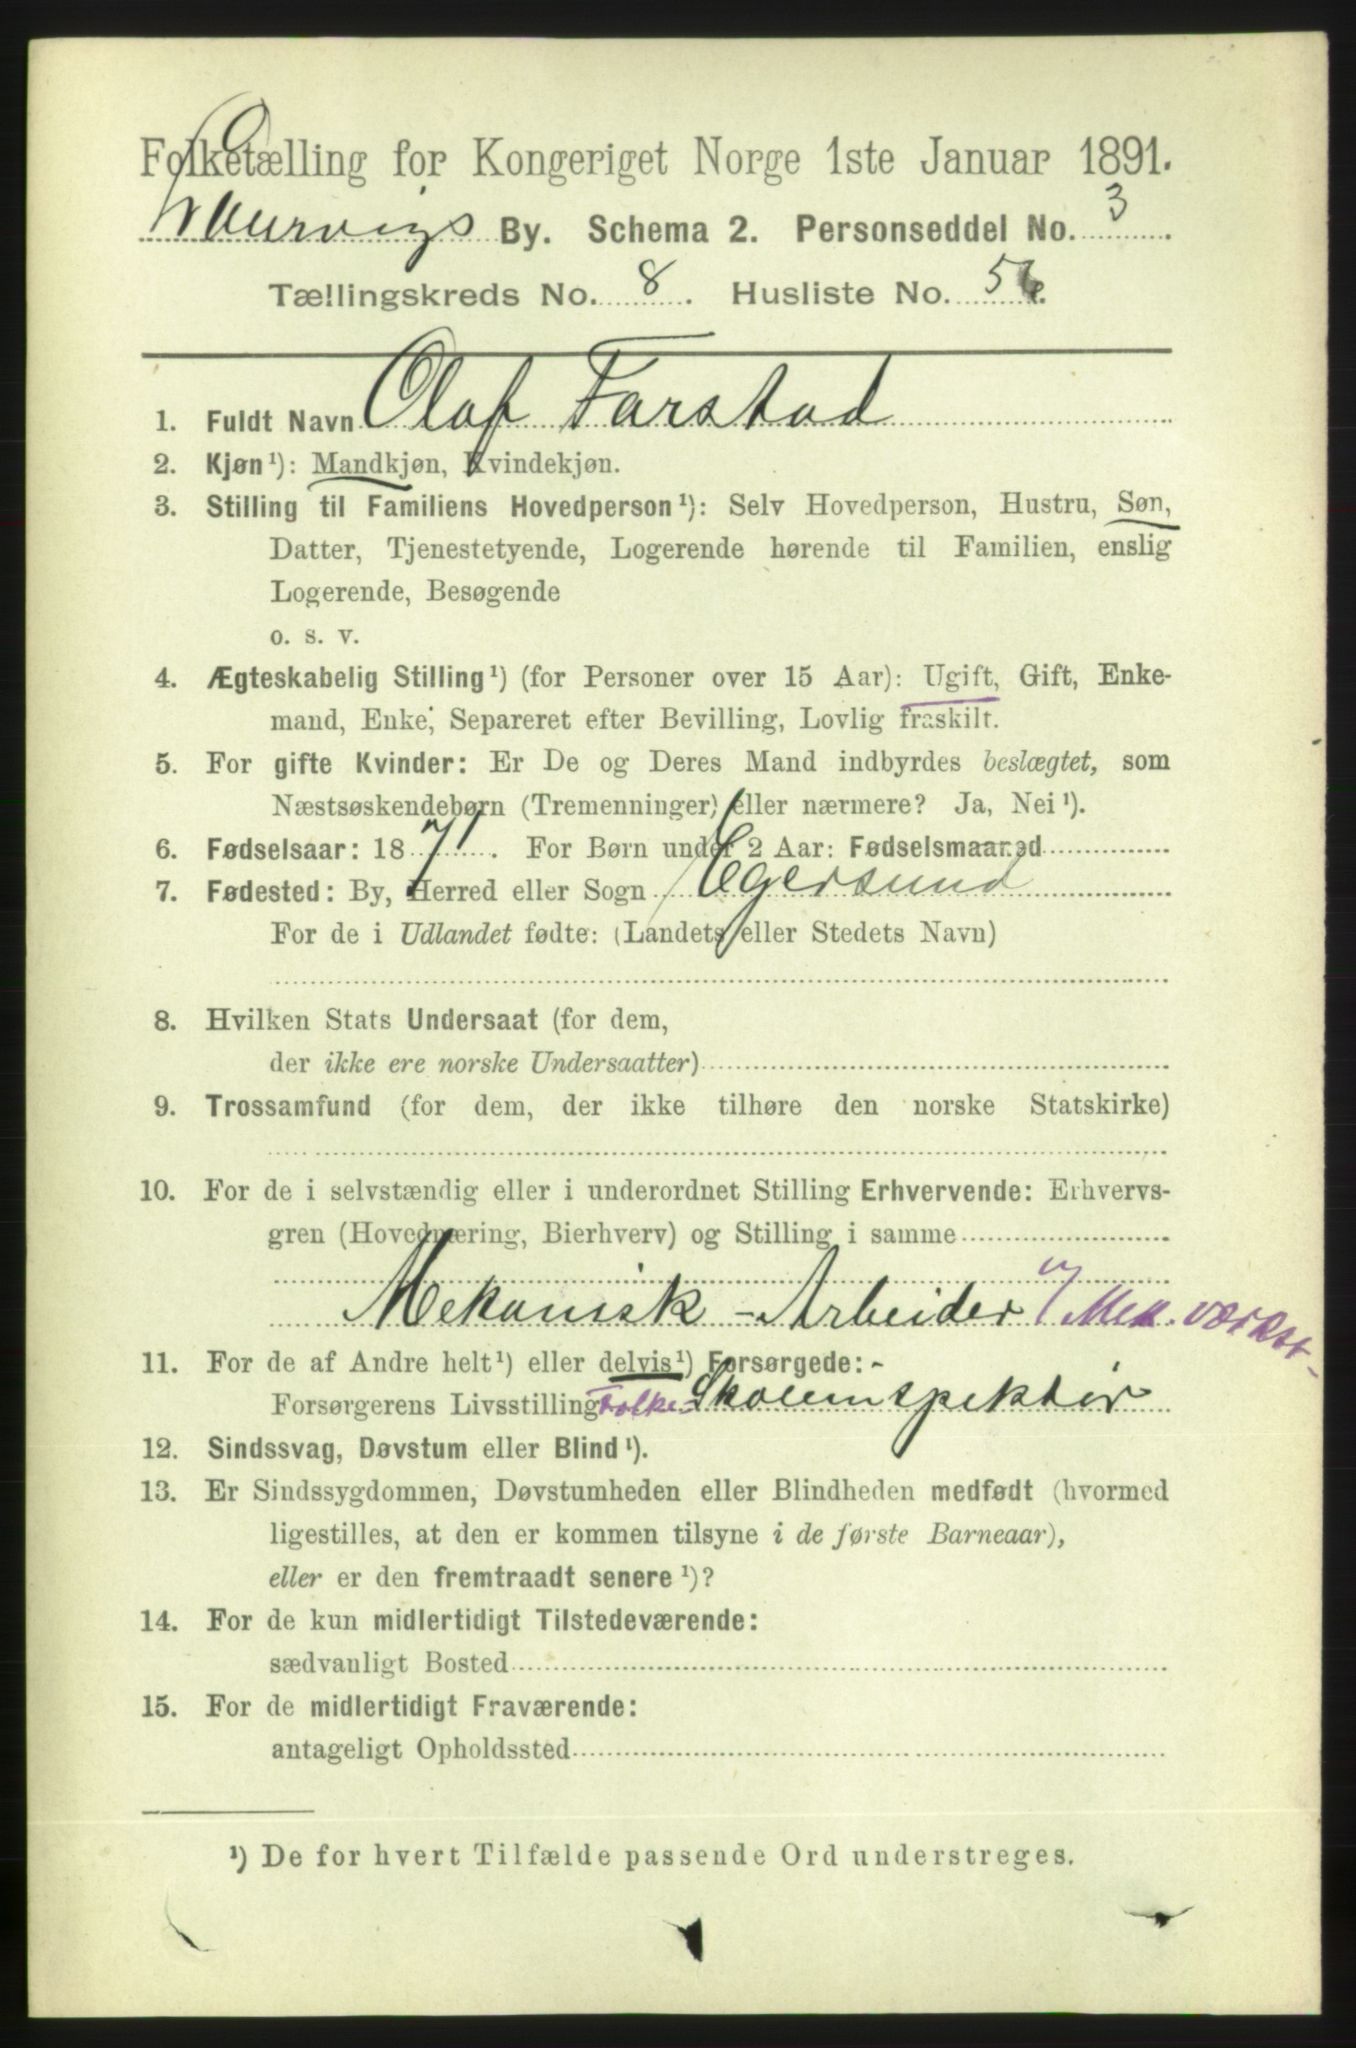 Folketælling for Kongeriget Norge 1ste Januar 1891.
Laurvigs By. Schema 2. Personseddel No. 3.
Tællingskreds No. 8. Husliste No. 56.
1. Fuldt Navn Olaf Farstad
2. Kjøn¹): Mandkjøn, Kvindekjøn.
3. Stilling til Familiens Hovedperson¹): Selv Hovedperson, Hustru, Søn,
Datter, Tjenestetyende, Logerende hørende til Familien, enslig
Logerende, Besøgende
o. s. v.
4. Ægteskabelig Stilling¹) (for Personer over 15 Aar): Ugift, Gift, Enke-
mand, Enke, Separeret efter Bevilling, Lovlig fraskilt.
5. For gifte Kvinder: Er De og Deres Mand indbyrdes beslægtet, som
Næstsøskendebørn (Tremenninger) eller nærmere? Ja, Nei¹).
6. Fødselsaar: 1871. For Børn under 2 Aar: Fødselsmaaned
7. Fødested: By, Herred eller Sogn Egersund
For de i Udlandet fødte: (Landets eller Stedets Navn)
8. Hvilken Stats Undersaat (for dem,
der ikke ere norske Undersaatter)
9. Trossamfund (for dem, der ikke tilhøre den norske Statskirke)
10. For de i selvstændig eller i underordnet Stilling Erhvervende: Erhvervs-
gren (Hovednæring, Bierhverv) og Stilling i samme
Mekanisk-Arbeider v/ Mek. værkst-
11. For de af Andre helt¹) eller delvis¹) Forsørgede:-
Forsørgerens Livsstilling Folke-Skoleinspektør
12. Sindssvag, Døvstum eller Blind¹).
13. Er Sindssygdommen, Døvstumheden eller Blindheden medfødt (hvormed
ligestilles, at den er kommen tilsyne i de første Barneaar),
eller er den fremtraadt senere¹)?
14. For de kun midlertidigt Tilstedeværende:
sædvanligt Bosted
15. For de midlertidigt Fraværende:
antageligt Opholdssted
¹) De for hvert Tilfælde passende Ord understreges.